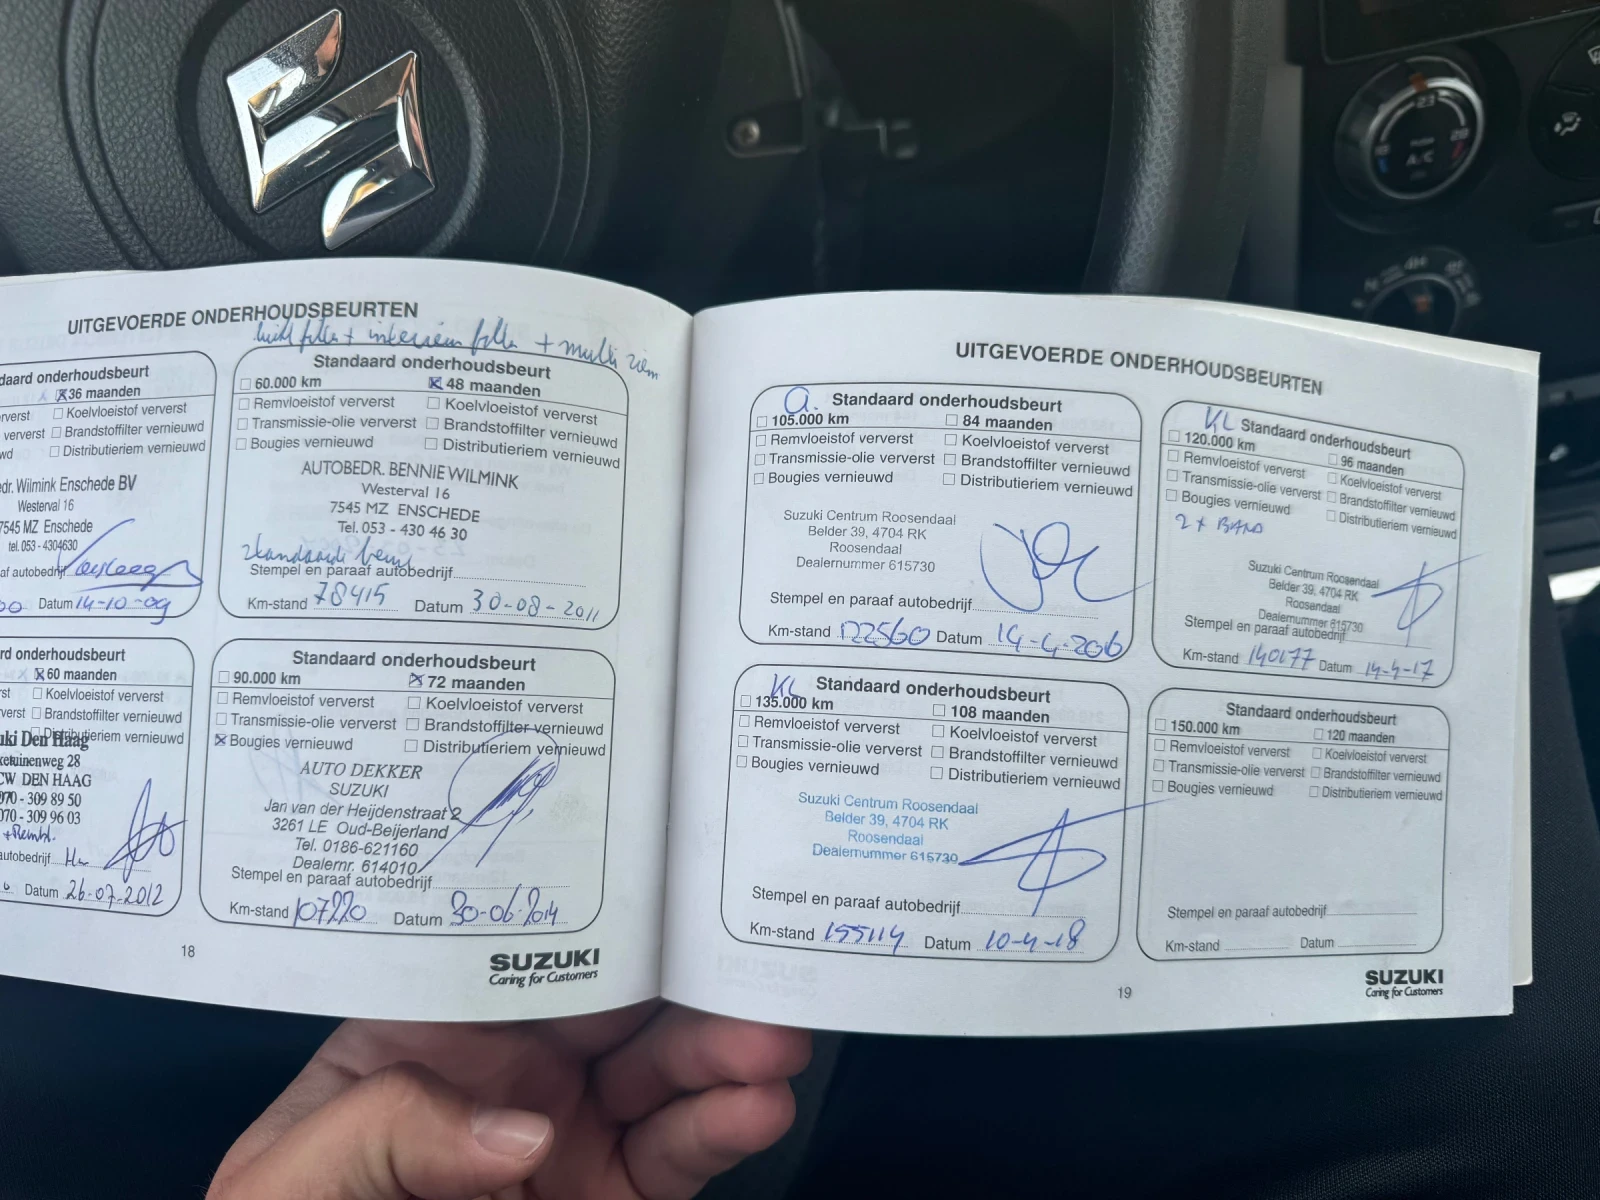 UITGEVOERDE ONDERHOUDSBEURTEN
daard onderhoudsbeurt
36 maanden
ververst Koelvloeistof ververst
ververst Brandstoffilter vernieuwd
wd Distributieriem vernieuwd
dr. Wilmink Enschede BV
Westerval 16
7545 MZ Enschede
tel. 053 - 4304630
af autobedrijf
00 Datum 14-10-09
+ interieur filter + multi riem
Standaard onderhoudsbeurt
60.000 km 48 maanden
Remvloeistof ververst Koelvloeistof ververst
Transmissie-olie ververst Brandstoffilter vernieuwd
Bougies vernieuwd Distributieriem vernieuwd
AUTOBEDR. BENNIE WILMINK
Westerval 16
7545 MZ ENSCHEDE
Tel. 053 - 430 46 30
standaard beurt
Stempel en paraaf autobedrijf
Km-stand 78415 Datum 30-08-2011
rd onderhoudsbeurt
60 maanden
rst Koelvloeistof ververst
verst Brandstoffilter vernieuwd
Distributieriem vernieuwd
uki Den Haag
ketuinenweg 28
CW DEN HAAG
070 - 309 89 50
070 - 309 96 03
autobedrijf
Datum 26-07-2012
Standaard onderhoudsbeurt
90.000 km 72 maanden
Remvloeistof ververst Koelvloeistof ververst
Transmissie-olie ververst Brandstoffilter vernieuwd
Bougies vernieuwd Distributieriem vernieuwd
AUTO DEKKER
SUZUKI
Jan van der Heijdenstraat 2
3261 LE Oud-Beijerland
Tel. 0186-621160
Dealernr. 614010
Stempel en paraaf autobedrijf
Km-stand 107220 Datum 30-06-2014
18
SUZUKI
Caring for Customers
UITGEVOERDE ONDERHOUDSBEURTEN
Standaard onderhoudsbeurt
105.000 km 84 maanden
Remvloeistof ververst Koelvloeistof ververst
Transmissie-olie ververst Brandstoffilter vernieuwd
Bougies vernieuwd Distributieriem vernieuwd
Suzuki Centrum Roosendaal
Belder 39, 4704 RK
Roosendaal
Dealernummer 615730
Stempel en paraaf autobedrijf
Km-stand 122560 Datum 14-4-2016
KL Standaard onderhoudsbeurt
120.000 km 96 maanden
Remvloeistof ververst Koelvloeistof ververst
Transmissie-olie ververst Brandstoffilter vernieuwd
Bougies vernieuwd Distributieriem vernieuwd
2x BAND
Suzuki Centrum Roosendaal
Belder 39, 4704 RK
Roosendaal
Dealernummer 615730
Stempel en paraaf autobedrijf
Km-stand 140177 Datum 14-4-17
KL Standaard onderhoudsbeurt
135.000 km 108 maanden
Remvloeistof ververst Koelvloeistof ververst
Transmissie-olie ververst Brandstoffilter vernieuwd
Bougies vernieuwd Distributieriem vernieuwd
Suzuki Centrum Roosendaal
Belder 39, 4704 RK
Roosendaal
Dealernummer 615730
Stempel en paraaf autobedrijf
Km-stand 155114 Datum 10-4-18
Standaard onderhoudsbeurt
150.000 km 120 maanden
Remvloeistof ververst Koelvloeistof ververst
Transmissie-olie ververst Brandstoffilter vernieuwd
Bougies vernieuwd Distributieriem vernieuwd
Stempel en paraaf autobedrijf
Km-stand Datum
19
SUZUKI
Caring for Customers
23
A/C
4H